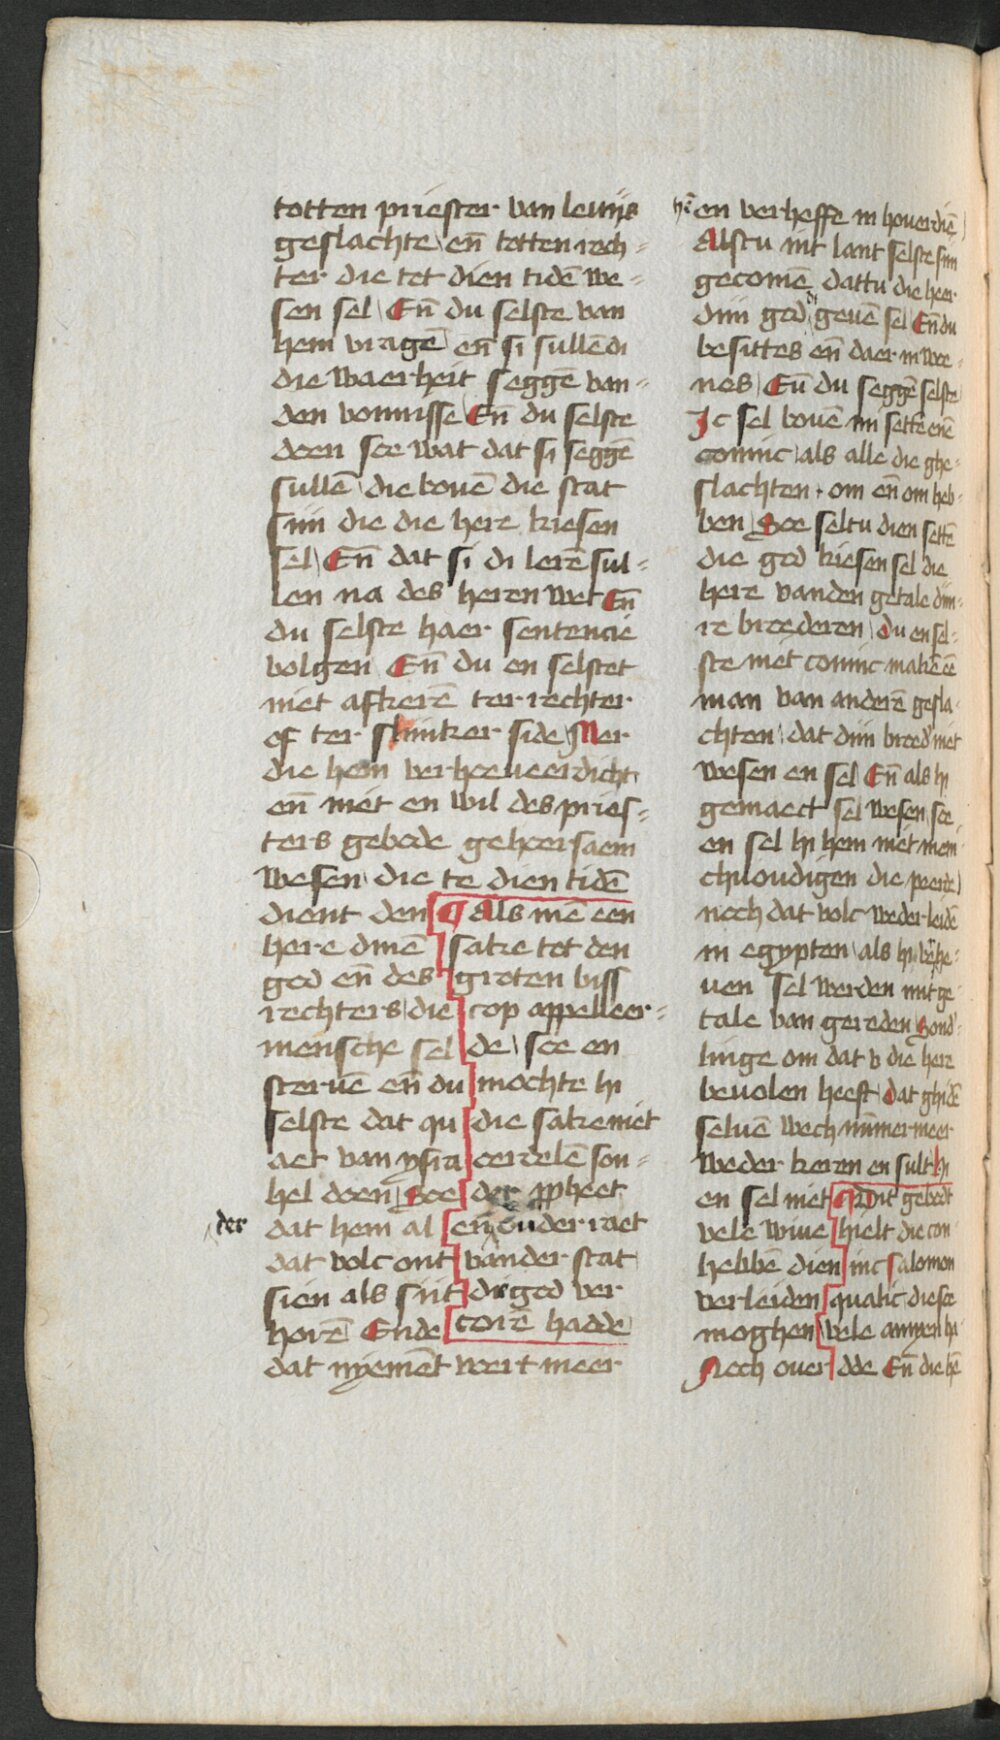 totten priester van leuijs
geslachte en̄ totten rech-
ter die tot dien tidē we-
sen sel En̄ du selste van
hem vragē en̄ si sullē di
die waerheit seggē van-
den vonnisse En̄ du selste
doen soe wat dat si seggē
sullē die bouē die stat
siin die die here kiesen
sel En̄ dat si di lerē sul-
len na des heren wet En̄
du selste haer sentencie
volgen En̄ du en selstet
niet afkerē ter rechter
of ter slinker side Mer
die hem verhoeueerdicht
en̄ niet en wil des pries-
ters gebode gehoersaem
wesen die te dien tidē
dient den
here dinē
god en̄ des
rechters die
mensche sel
steruē en̄ du
selste dat qu
aet van ysra
hel doen Soe
der dat hem al
dat volc ont
sien als siit
horē Ende
dat nyemēt wort meer
¶ Als mē een
sake tot den
groten biss
cop appelleer-
de soe en
mochte hi
die sake niet
oerdelē son-
der ppheet
en̄ ouder raet
vander stat
die god ver
corē hadde
hi en verheffe in houerdiē
Alstu int lant selste siin
gecomē dattu die heer
diin god di geuē sel En̄ du
besittes en̄ daer in woe-
nes En̄ du seggē selste
Ic sel bouē mi settē enē
coninc als alle die ghe-
slachten om en̄ om heb-
ben Soe seltu dien settē
die god kiesen sel die
here vanden getale diin-
re broederen du en sel-
ste niet coninc makē eē
man van anderē gesla-
chten dat diin broed' niet
wesen en sel En̄ als hi
gemaect sel wesen soe
en sel hi hem niet men
chuoudigen die peerde
noch dat volc weder leidē
in egypten als hi v'he-
uen sel werden mit ge
tale van gereden Sond'
linge om dat v die here
beuolen heeft dat ghi dē
seluē wech nūmermeer
weder keren en sult hi
en sel niet
vele wiue
hebbē dien
verleiden
moghen
Noch ouer
¶ Dit gebodt
hielt die con
inc salomon
qualic die soe
vele amyen ha
dde En̄ die hē